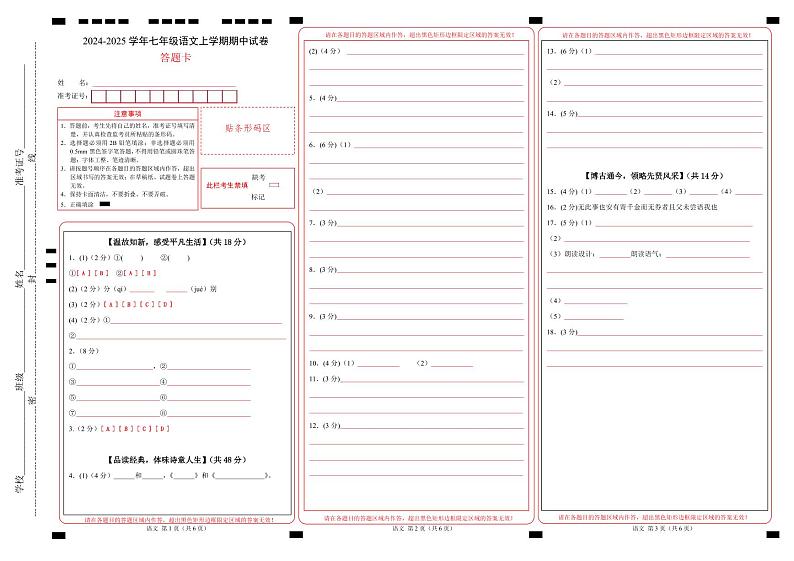 学校
班级
姓名
准考证号
密
封
线
2024-2025 学年七年级语文上学期期中试卷
答题卡
姓 名：
准考证号：
注意事项
1．答题前，考生先将自己的姓名，准考证号填写清楚，并认真检查监考员所粘贴的条形码。
2．选择题必须用 2B 铅笔填涂；非选择题必须用 0.5mm 黑色签字笔答题，不得用铅笔或圆珠笔答题；字体工整、笔迹清晰。
3．请按题号顺序在各题目的答题区域内作答，超出区域书写的答案无效；在草稿纸、试题卷上答题无效。
4．保持卡面清洁，不要折叠、不要弄破。
5．正确填涂
贴条形码区
此栏考生禁填
缺考
标记
【温故知新，感受平凡生活】(共 18 分)
1．(1)(2 分)①( ) ②( )
①[ A ] [ B ] ②[ A ] [ B ]
(2)(2 分)分（qí）______ ______（jué）别
(3)(2 分)[ A ] [ B ] [ C ] [ D ]
(4)(2 分)①
②
2．(8 分)
① ，②
③ ④
⑤ ⑥
⑦ ⑧
3.(2 分) [ A ] [ B ] [ C ] [ D ]
【品读经典，体味诗意人生】(共 48 分)
4．(1)(4 分)______和______，《______》和《______》。
请在各题目的答题区域内作答，超出黑色矩形边框限定区域的答案无效！
语文 第 1 页（共 6 页）
请在各题目的答题区域内作答，超出黑色矩形边框限定区域的答案无效！
(2)(4 分)
5．(4 分)
6．(6 分)（1）
（2）
7．(3 分)
8．(3 分)
9．(3 分)
10．(4 分)（1） （2）
11．(3 分)
12．(3 分)
请在各题目的答题区域内作答，超出黑色矩形边框限定区域的答案无效！
语文 第 2 页（共 6 页）
请在各题目的答题区域内作答，超出黑色矩形边框限定区域的答案无效！
13．(6 分)（1）
（2）
14．(5 分)
【博古通今，领略先贤风采】(共 14 分)
15．(4 分)（1）______（2）______（3）______（4）______
16．(2 分)无此事也安有寄千金而无券者且父未尝语我也
17．(5 分)（1）
（2）
（3）朗读设计：______朗读语气：
（4）
（5）
18．(3 分)
请在各题目的答题区域内作答，超出黑色矩形边框限定区域的答案无效！
语文 第 3 页（共 6 页）